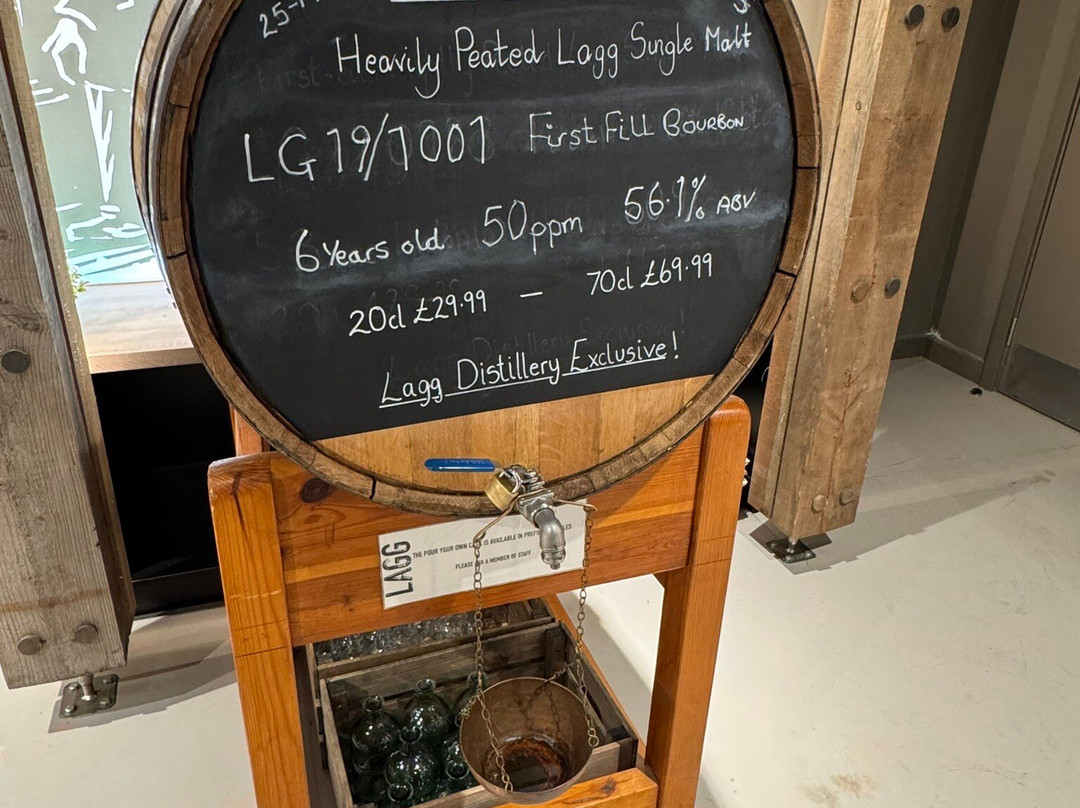 Heavily Peated Lagg Single Malt
LG19/1001 First Fill Bourbon
6 Years old 50ppm 56.1% ABV
20cl £29.99 - 70cl £69.99
Lagg Distillery Exclusive!
LAGG
THE POUR YOUR OWN IS AVAILABLE IN
PLEASE A MEMBER OF STAFF